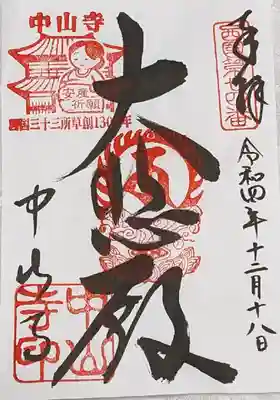 奉拝
西国第二十四番
令和四年十二月十八日
大悲殿
中山寺
中山寺
安産
祈願
西国三十三所草創1300年
中山寺印